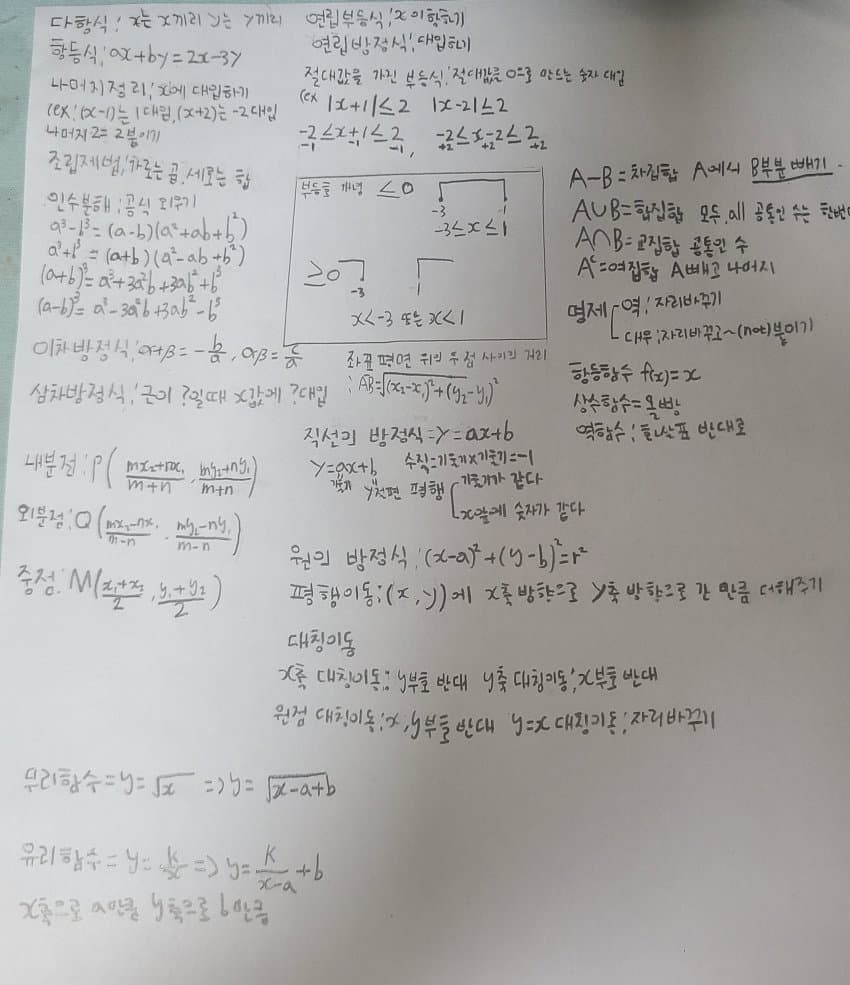 다항식: x는 x끼리 y는 y끼리
항등식: ax+by=2x-3y
나머지정리: x에 대입하기
(ex: (x-1)는 1대입, (x+2)는 -2대입
나머지 2= 2붙이기
조립제법: 가로는 곱, 세로는 합
인수분해: 공식 외우기
a³-b³=(a-b)(a²+ab+b²)
a³+b³=(a+b)(a²-ab+b²)
(a+b)³=a³+3a²b+3ab²+b³
(a-b)³=a³-3a²b+3ab²-b³
이차방정식: α+β=-b/a, αβ=c/a
삼차방정식: 근이 ?일때 x값에 ?대입
내분점: P(mx₂+nx₁/m+n, my₂+ny₁/m+n)
외분점: Q(mx₂-nx₁/m-n, my₂-ny₁/m-n)
중점: M(x₁+x₂/2, y₁+y₂/2)
연립부등식: x이항하기
연립방정식: 대입하기
절대값을 가진 부등식: 절대값을 0으로 만드는 숫자 대입
(ex |x+1|≤2 |x-2|≤2
-2≤x+1≤2, -2≤x-2≤2
-1 -1 -1 +2 +2 +2
부등호 개념 ≤0
-3 1
-3≤x≤1
≥0
-3 1
x<-3 또는 x<1
좌표평면 위의 두 점 사이의 거리
: AB=√(x₂-x₁)²+(y₂-y₁)²
직선의 방정식=y=ax+b
y=ax+b 수직=기울기x기울기=-1
기울기 y절편 평행 기울기가 같다
x앞에 숫자가 같다
A-B=차집합 A에서 B부분 빼기
A∪B=합집합 모두, all 공통인 수는 한번
A∩B=교집합 공통인 수
Aᶜ=여집합 A빼고 나머지
명제 역: 자리바꾸기
대우: 자리바꾸고 ~(not)붙이기
항등함수 f(x)=x
상수함수=몰빵
역함수: 화살표 반대로
원의 방정식: (x-a)²+(y-b)²=r²
평행이동: (x,y)에 x축 방향으로 y축 방향으로 간 만큼 더해주기
대칭이동
x축 대칭이동: y부호 반대 y축 대칭이동: x부호 반대
원점 대칭이동: x,y부호 반대 y=x 대칭이동: 자리바꾸기
무리함수=y=√x => y=√x-a+b
유리함수=y=k/x => y=k/x-a+b
x축으로 a만큼 y축으로 b만큼